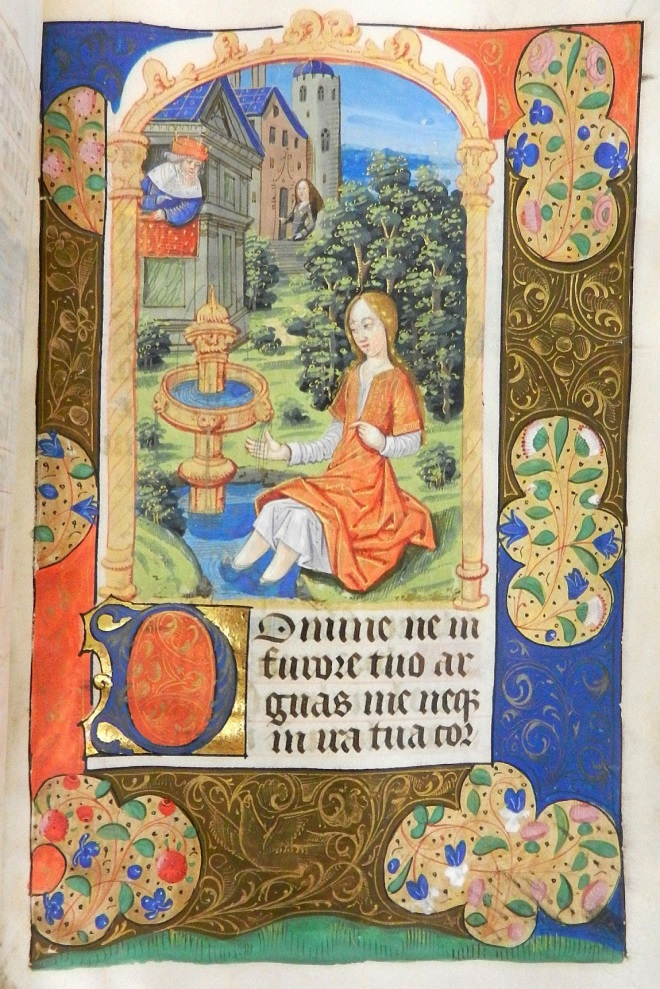 DOmine ne in
furore tuo ar
guas me neqꝫ
in ira tua cor